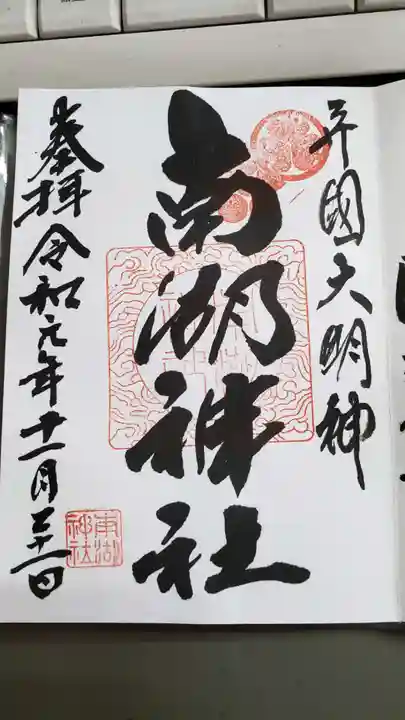 守國大明神
南湖神社
奉拝令和元年十一月二十一日
南湖
神社